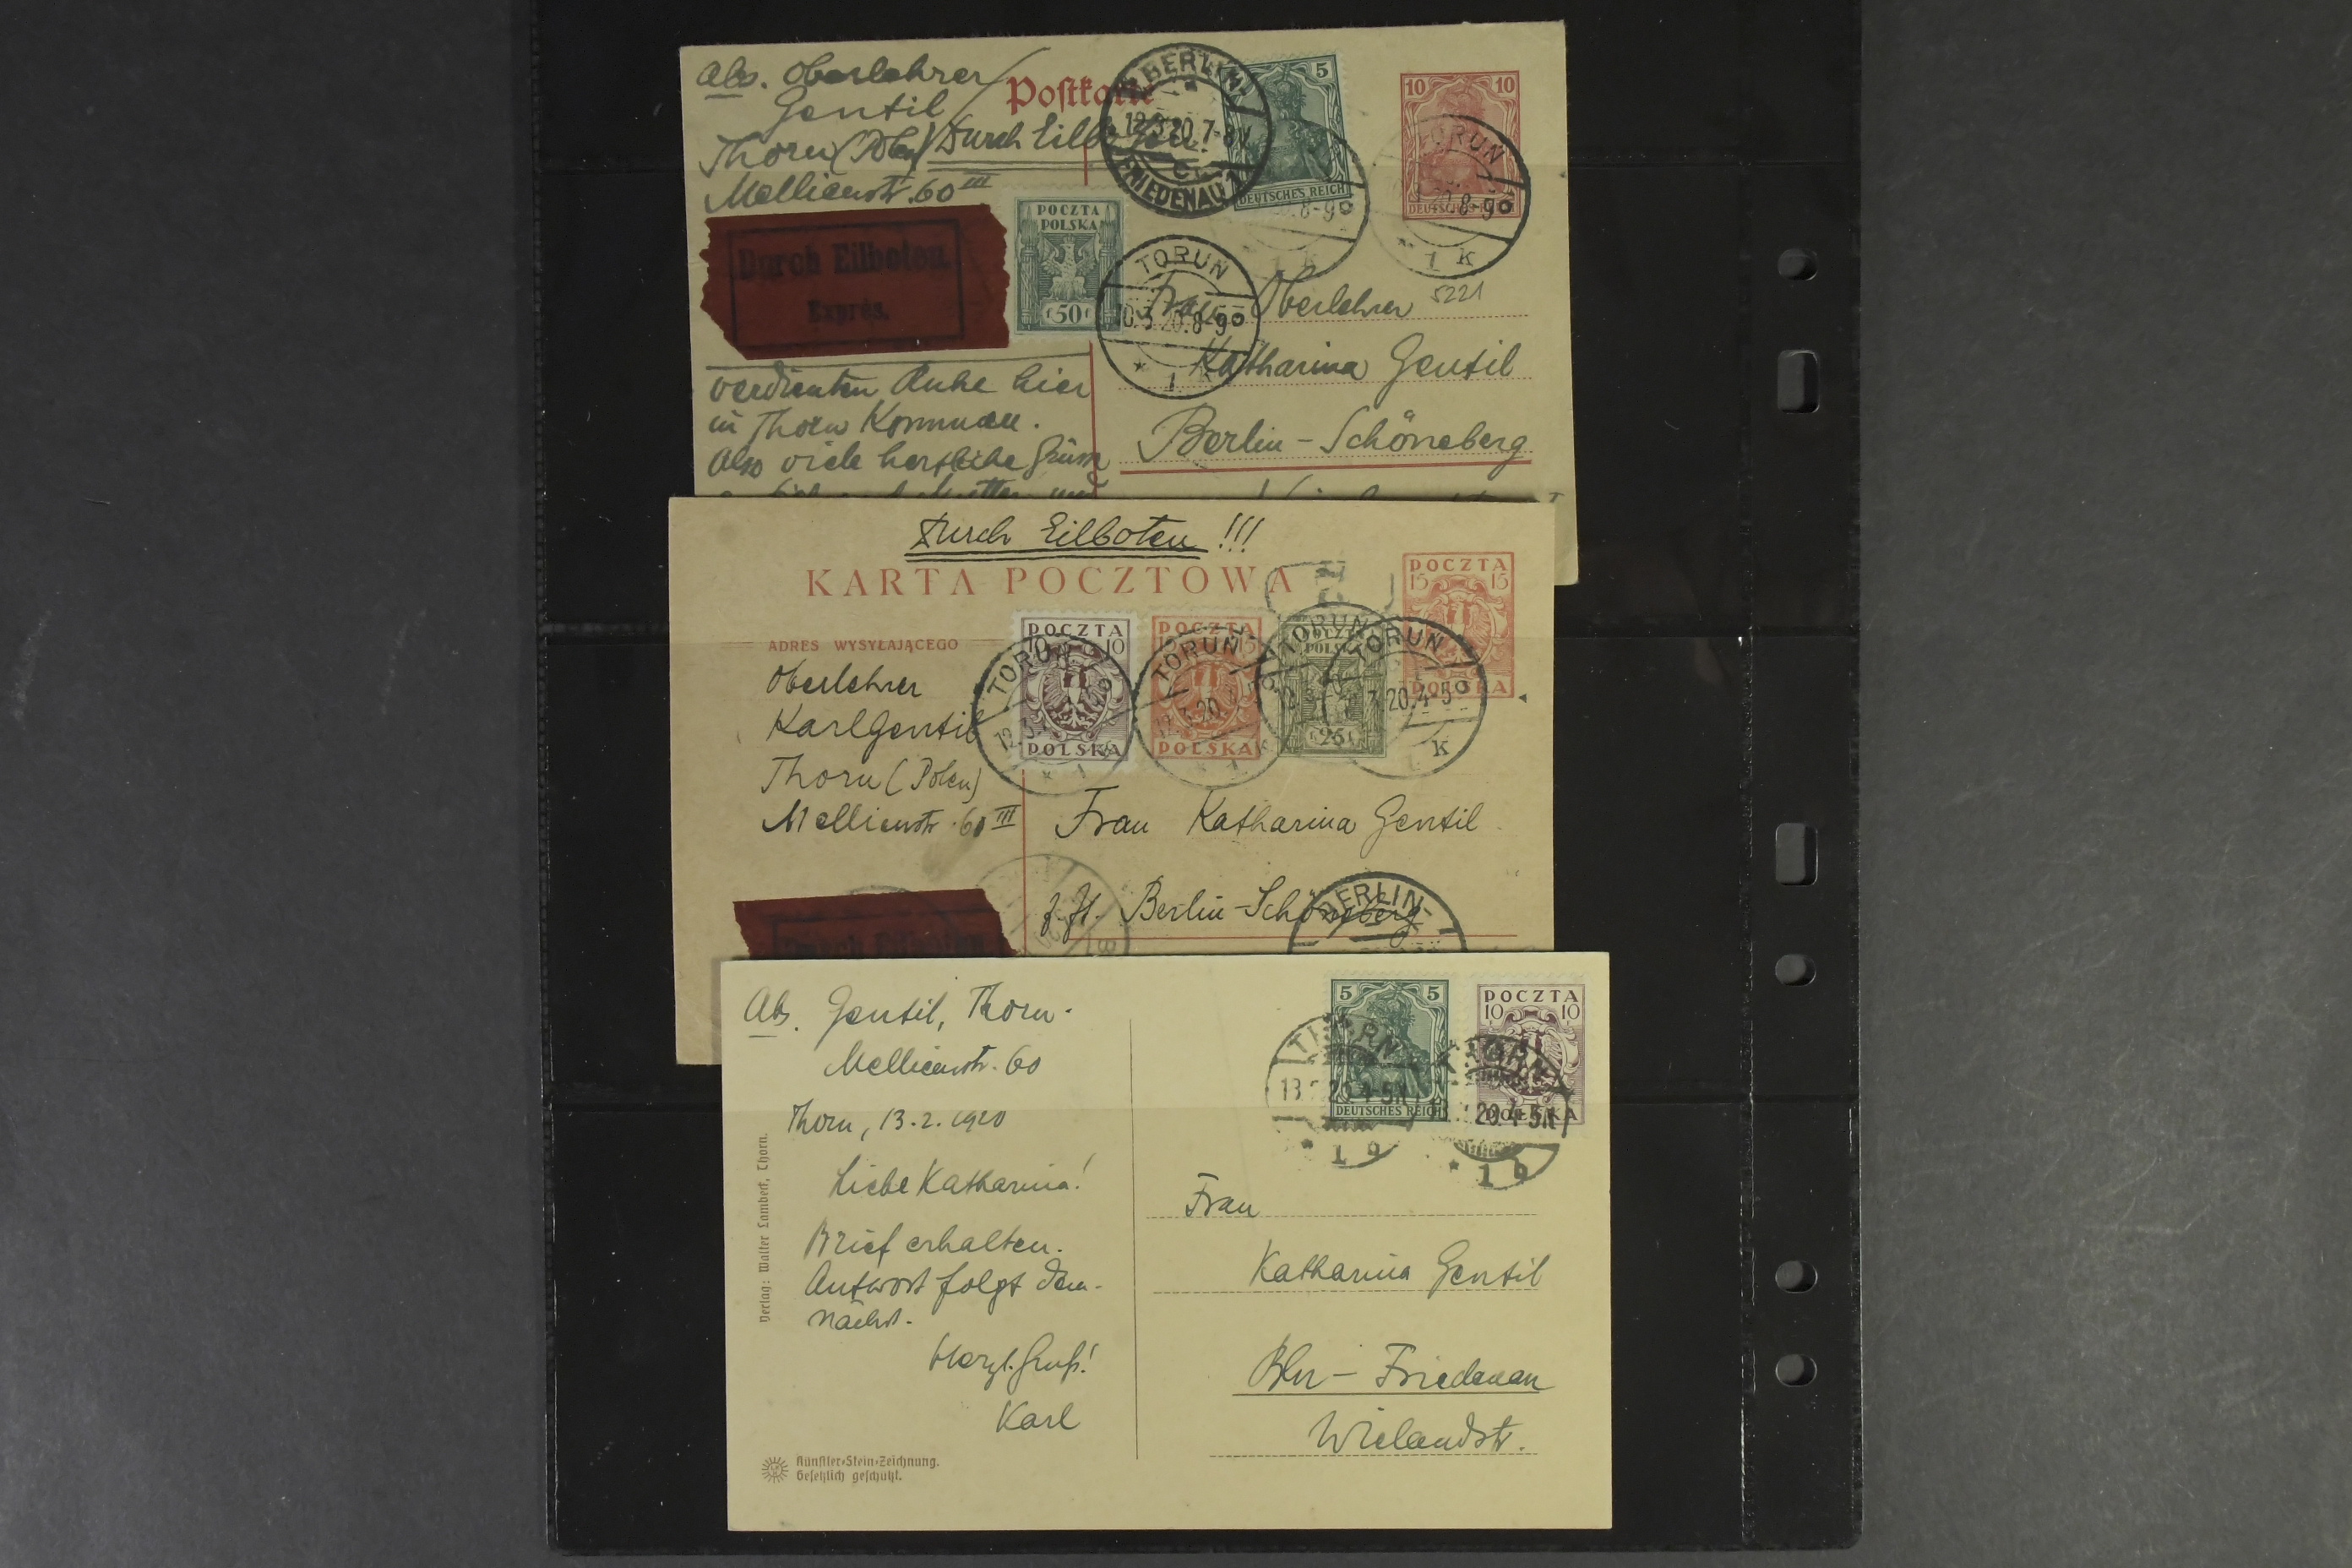 Abs. Oberlehrer
Gentil
Thorn (Polen)
Mellienstr. 60 III
Postkarte
Durch Eilboten
BERLIN-
12.3.20.7-8V.
FRIEDENAU 1
5
DEUTSCHES REICH
8-9
1 K
10 10
DEUTSCHES REICH
TORUŃ
20.8-9
* 1 K
Durch Eilboten
Exprés.
POCZTA
POLSKA
50
TORUN
10.3.20.8-9
* 1
5221
Frau Oberlehrer
Katharina Gentil
Berlin-Schöneberg
verdienten Ruhe hier
in Thorn kommen.
Also viele herzliche Grüsse
Durch Eilboten!!!
KARTA POCZTOWA
POCZTA
15 15
POLSKA
ADRES WYSYŁAJĄCEGO
Oberlehrer
Karl Gentil
Thorn (Polen)
Mellienstr. 60 III
POCZTA
10 10
POLSKA
TORUŃ
12.3.
* 1
POCZTA
15 15
POLSKA
TORUŃ
12.3.20
* 1 K
POCZTA
POLSKA
25
TORUŃ
12.3.
TORUŃ
3.20.4-5
K
Frau Katharina Gentil
z. Zt. Berlin-Schöneberg
BERLIN-
Durch Eilboten
Abs. Gentil, Thorn.
Mellienstr. 60
Thorn, 13.2.1920
Liebe Katharina!
Brief erhalten.
Antwort folgt dem-
nächst.
Herzl. Gruß!
Karl
Verlag: Walter Lambeck, Thorn.
Künstler-Stein-Zeichnung.
Gesetzlich geschützt.
5 5
DEUTSCHES REICH
POCZTA
10 10
POLSKA
THORN
13.2.20.4-5N
* 1 b
THORN
20.4-5N
* 1 b
Frau
Katharina Gentil
Bln-Friedenau
Wielandstr.